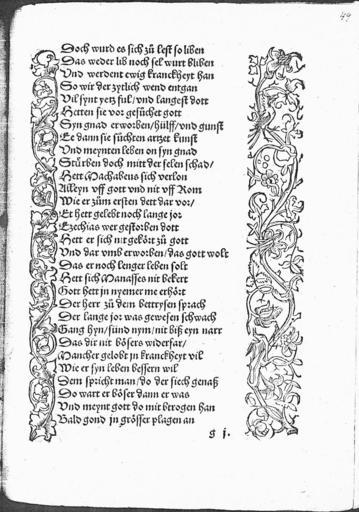 49
Doch wurd es sich zů lest so liben
Das weder lib noch sel wurt bliben
Vnd werdent ewig kranckheyt han
So wir der zytlich wend entgan
Vil synt yetz ful/vnd langest dott
Hetten sie vor gesůchet gott
Syn gnad erworben/hülff/vnd gunst
Ee dann sie sůchten artzet kunst
Vnd meynten leben on syn gnad
Stürben doch mitt der selen schad/
Hett Machabeus sich verlon
Alleyn vff gott vnd nit vff Rom
Wie er zům ersten dett dar vor/
Er hett gelebt noch lange jor
Ezechias wer gestorben dott
Hett er sich nit gekört zů gott
Vnd dar vmb erworben/das gott wolt
Das er noch lenger leben solt
Hett sich Manasses nit bekert
Gott hett jn nyemer me erhört
Der herr zů dem bettrysen sprach
Der lange jor was gewesen schwach
Gang hyn/sünd nym/nit biß eyn narr
Das dir nit bösers widerfar/
Mancher gelobt jn kranckheyt vil
Wie er syn leben bessern wil
Dem spricht man/do der siech genaß
Do wart er böser dann er was
Vnd meynt gott do mit betrogen han
Bald gond jn grösser plagen an
g j.